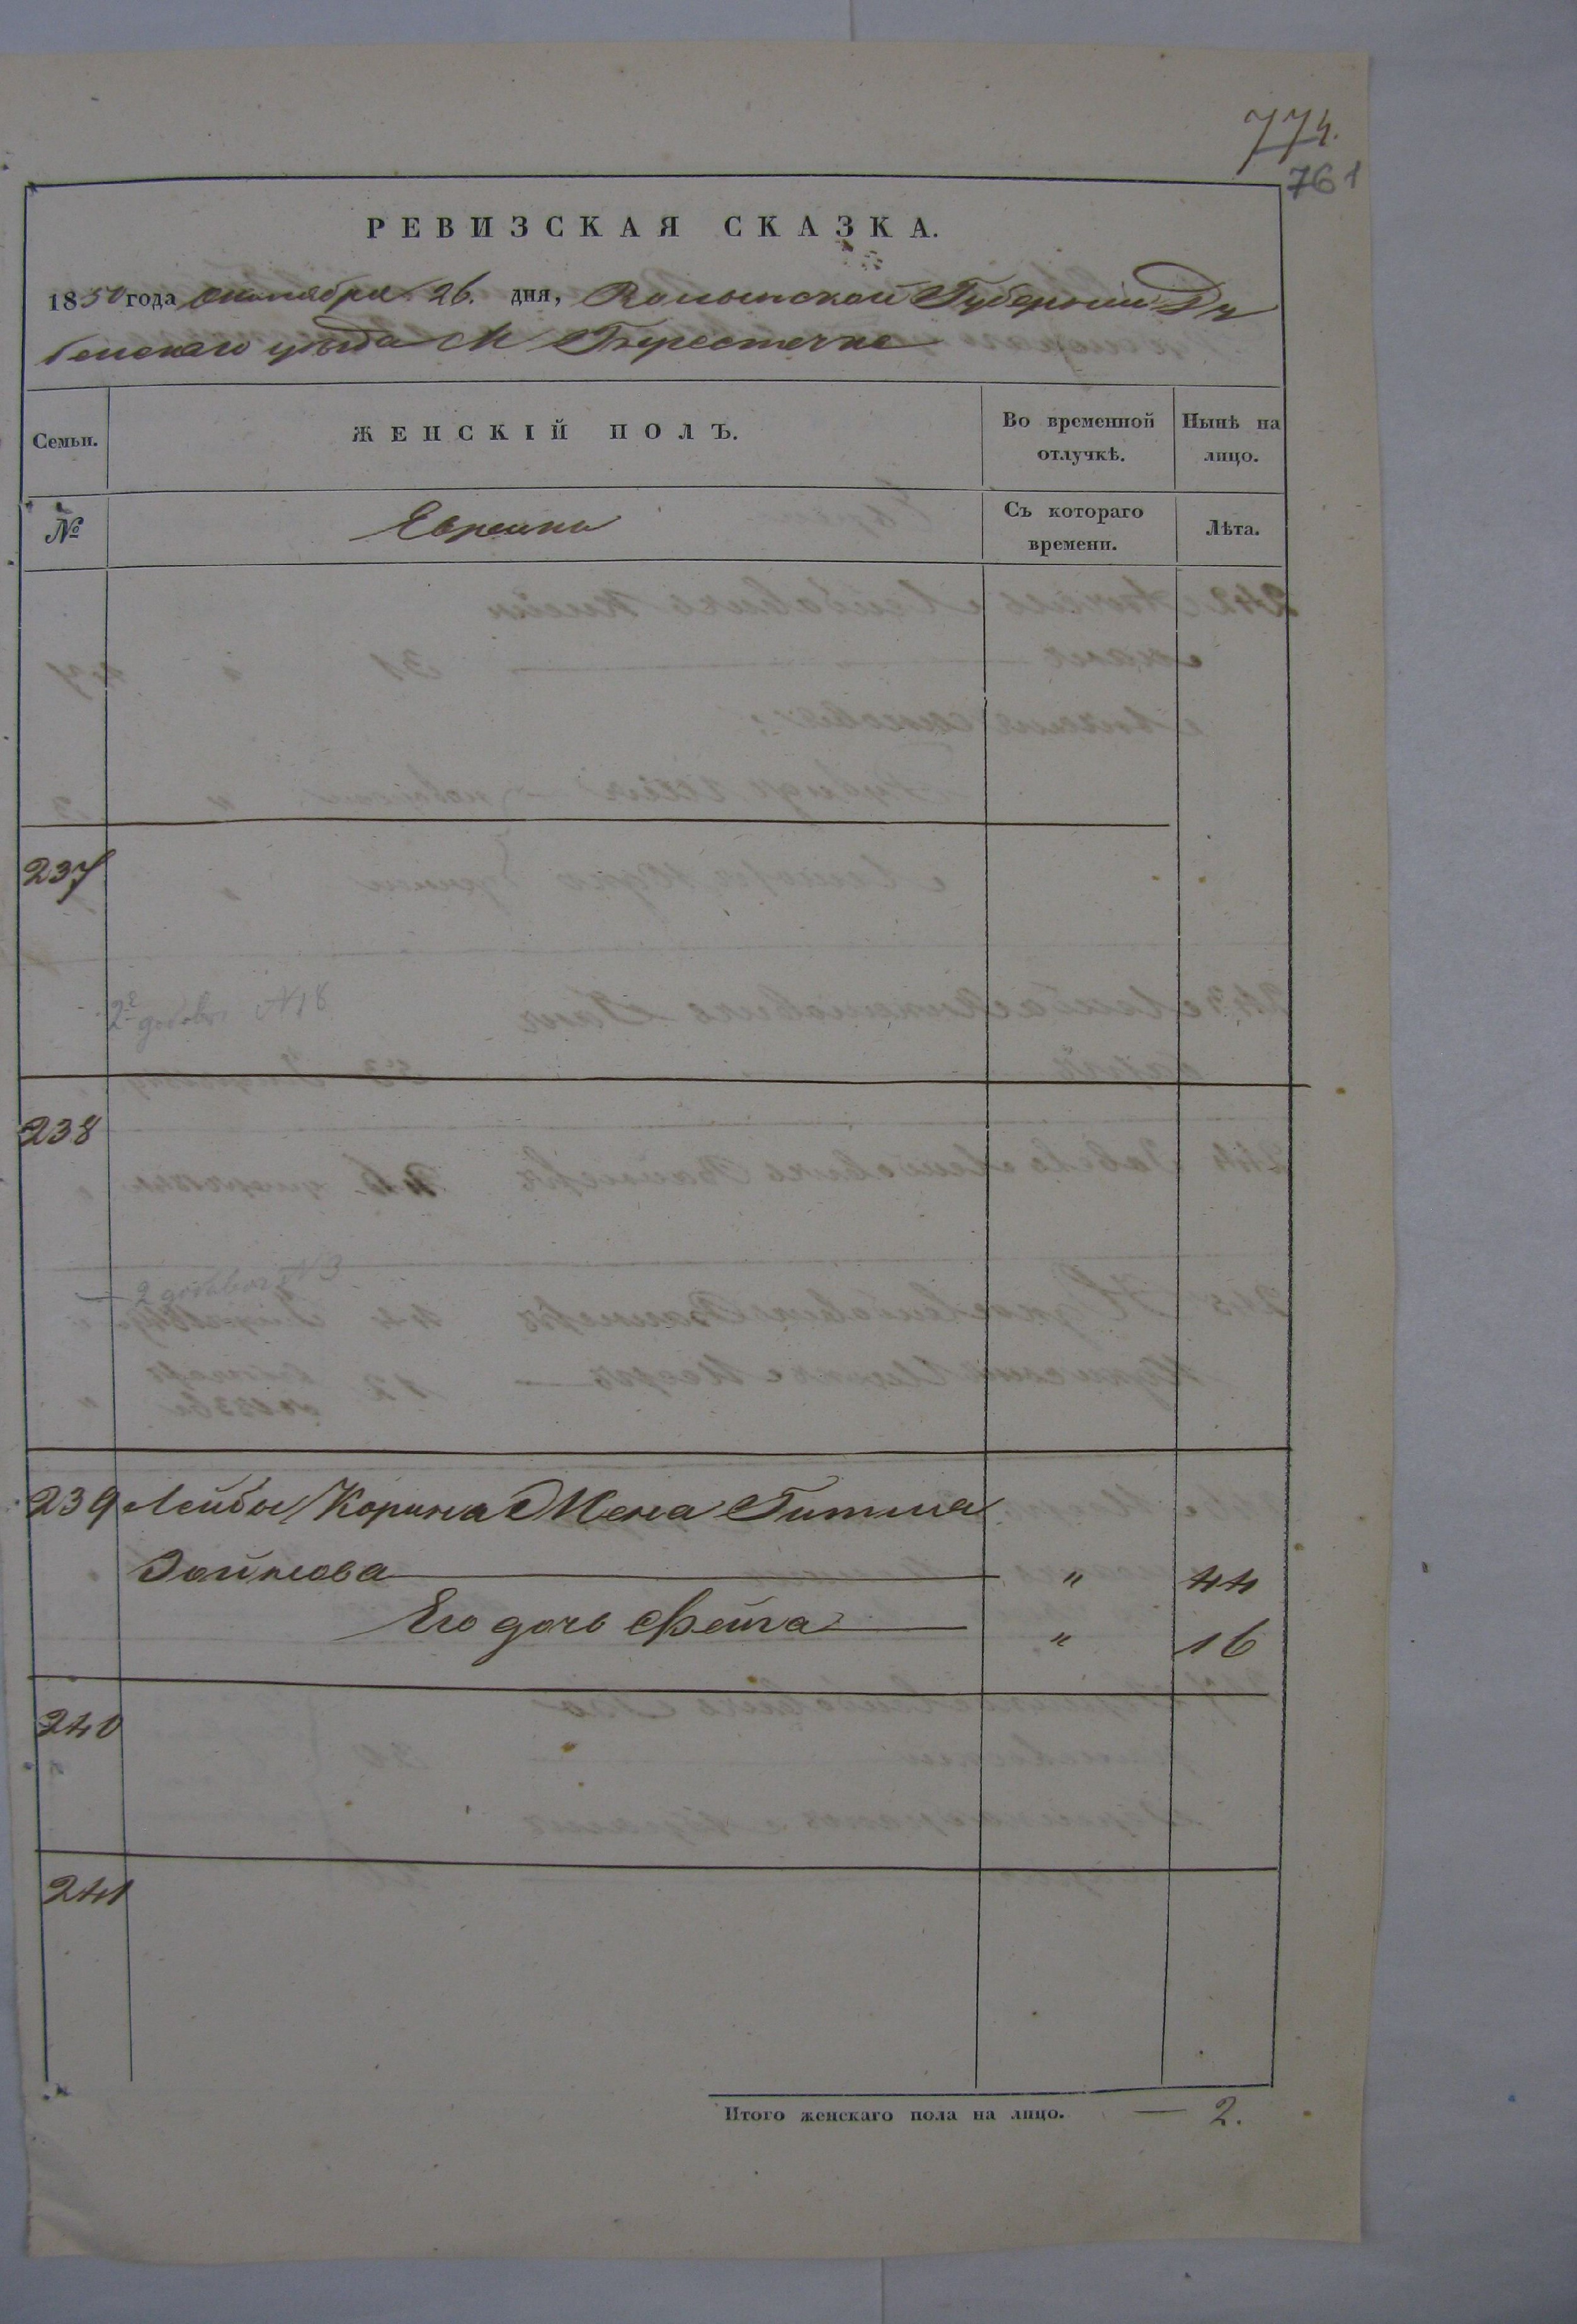 774.
761
РЕВИЗСКАЯ СКАЗКА.
1850 года октября 26. дня, Волынской Губернии Ду
бенскаго уѣзда М Берестечке
Семьи.
ЖЕНСКІЙ ПОЛЪ.
Во временной отлучкѣ.
Нынѣ на лицо.
№
Евреики
Съ котораго времени.
Лѣта.
237
2е N 18
238
2 N 3
239 Лейбы Корина Жена Гитля
" 44
Его дочь Фейга " 16
240
241
Итого женскаго пола на лицо. — 2.